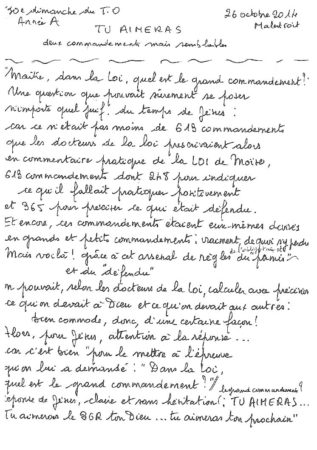 30e dimanche du T.O
26 octobre 2014
Année A
Malestroit
TU AIMERAS
deux commandements mais semblables
"Maître, dans la Loi, quel est le grand commandement?"
Une question que pouvait sûrement se poser
n'importe quel juif du temps de Jésus:
car ce n'était pas moins de 613 commandements
que les docteurs de la loi prescrivaient alors
en commentaire pratique de la LOI de Moïse,
613 commandements dont 248 pour indiquer
ce qu'il fallait pratiquer positivement
et 365 pour préciser ce qui était défendu.
Et encore, ces commandements étaient eux-mêmes divisés
en grands et petits commandements; vraiment, de quoi s'y perdre
Mais voilà! grâce à cet arsenal de règles du "permis"
et du "défendu"
on pouvait, selon les docteurs de la Loi, calculer avec précision
ce qu'on devait à Dieu et ce qu'on devait aux autres:
bien commode, donc, d'une certaine façon!
Alors, pour Jésus, attention à la réponse...
car c'est bien "pour le mettre à l'épreuve
qu'on lui a demandé: "Dans la Loi,
quel est le grand commandement?"
le grand commandement?
réponse de Jésus, claire et sans hésitation: TU AIMERAS...
Tu aimeras le SGR ton Dieu... tu aimeras ton prochain"